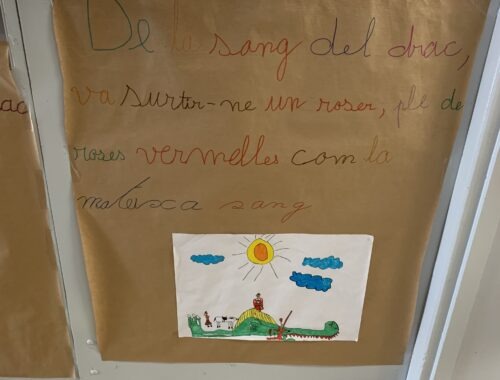 De la sang del drac,
va surtir-ne un roser, ple de
roses vermelles com la
mateixa sang
ac